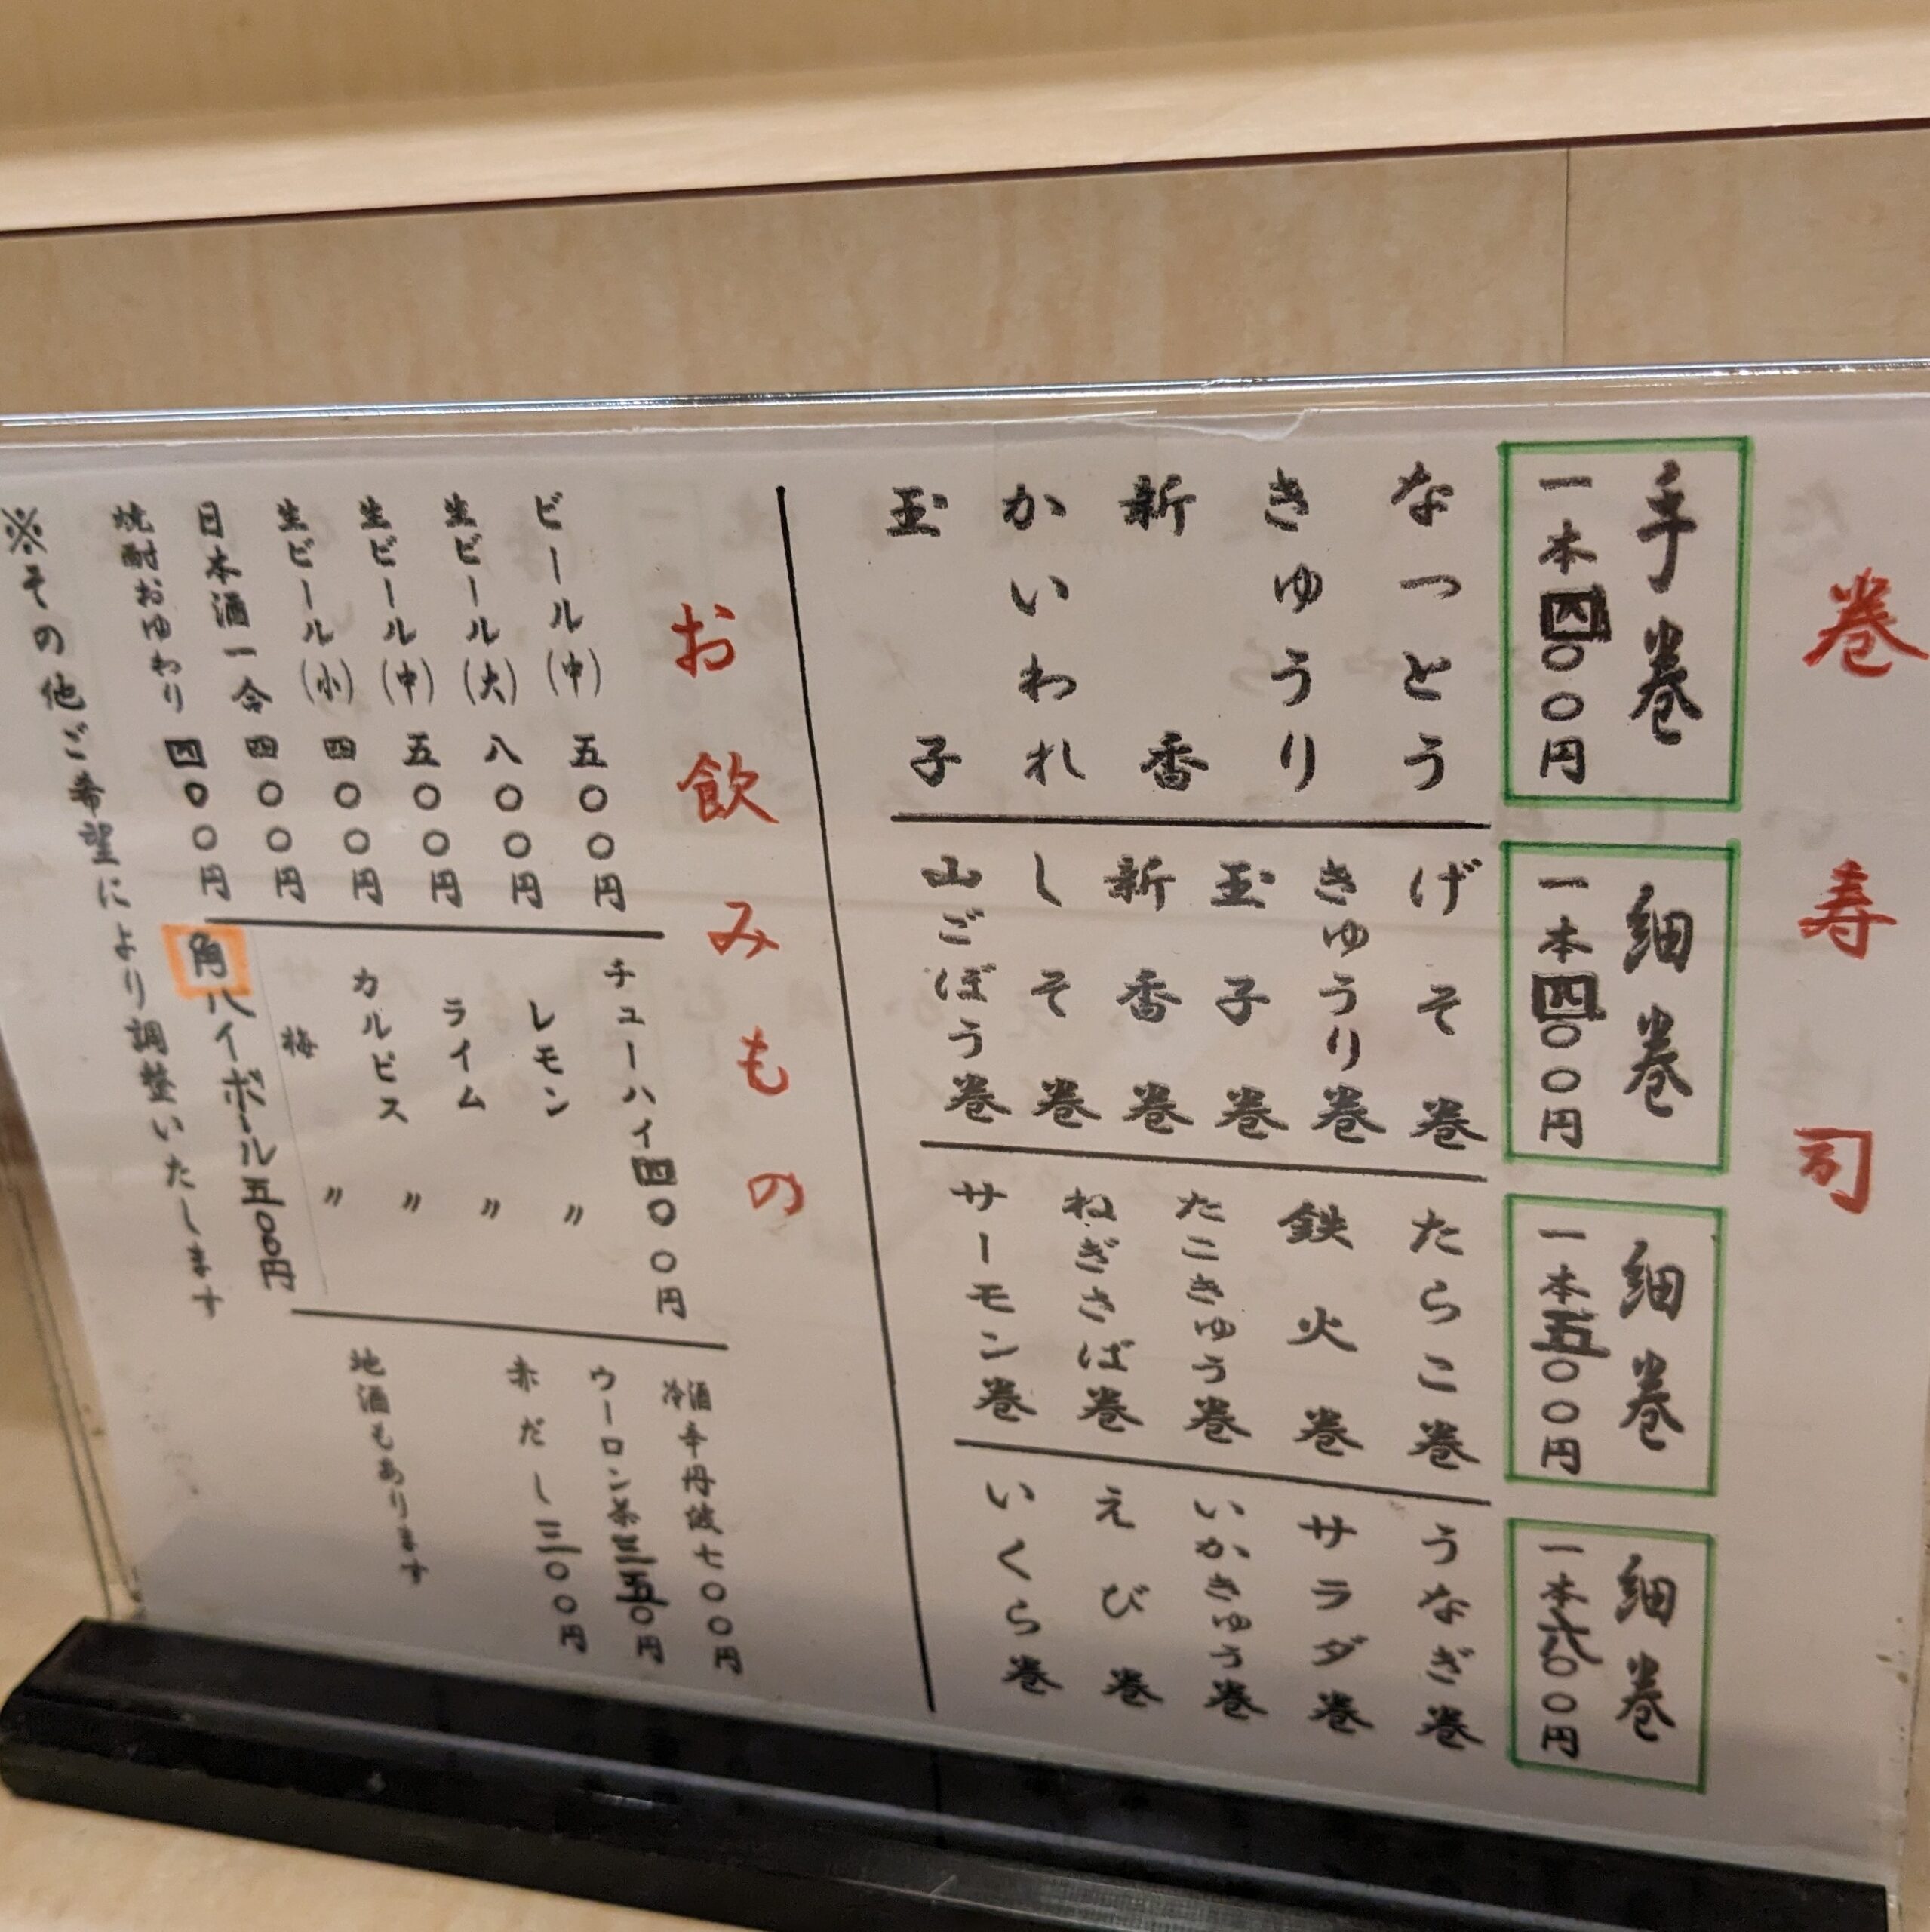 巻寿司
手巻
一本四〇〇円
なっとう
きゅうり
新香
かいわれ
玉子
細巻
一本四〇〇円
げそ巻
きゅうり巻
玉子巻
新香巻
しそ巻
山ごぼう巻
細巻
一本五〇〇円
たらこ巻
鉄火巻
たこきゅう巻
ねぎさば巻
サーモン巻
細巻
一本六〇〇円
うなぎ巻
サラダ巻
いかきゅう巻
えび巻
いくら巻
お飲みもの
ビール(中)五〇〇円
生ビール(大)八〇〇円
生ビール(中)五〇〇円
生ビール(小)四〇〇円
日本酒一合四〇〇円
焼酎おゆわり四〇〇円
チューハイ四〇〇円
レモン 〃
ライム 〃
カルピス 〃
梅 〃
角ハイボール五〇〇円
冷酒辛丹波七〇〇円
ウーロン茶三五〇円
赤だし三〇〇円
地酒もあります
※その他ご希望により調整いたします